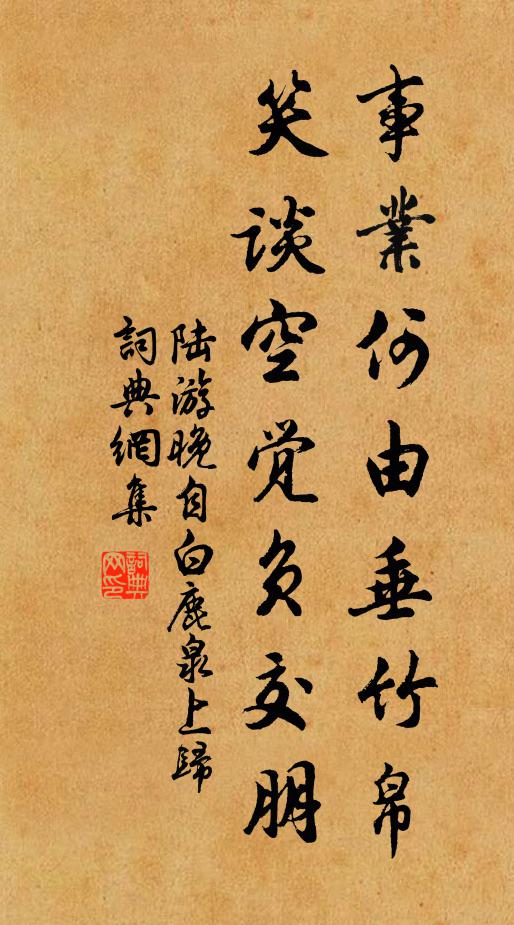 事業何由垂竹帛
笑談空覺負交朋
陸游晚自白鹿泉上歸
詞典網集
詞典网印